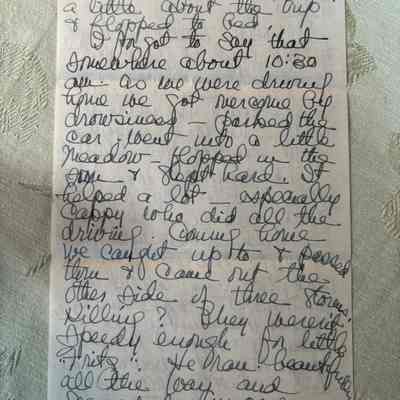 a little about the trip
& flopped to bed.
I forgot to say that
somewhere about 10:30
am. as we were driving
home we got overcome by
drowsiness – parked the
car. went into a little
meadow – flopped in the
sun & slept hard. It
helped a lot – especially
Cappy who did all the
driving. Coming home
we caught up to & passed
thru & came out the
other side of three storms.
Killing? They weren't
speedy enough for little
"Fritz". He ran beautifully
all the way and